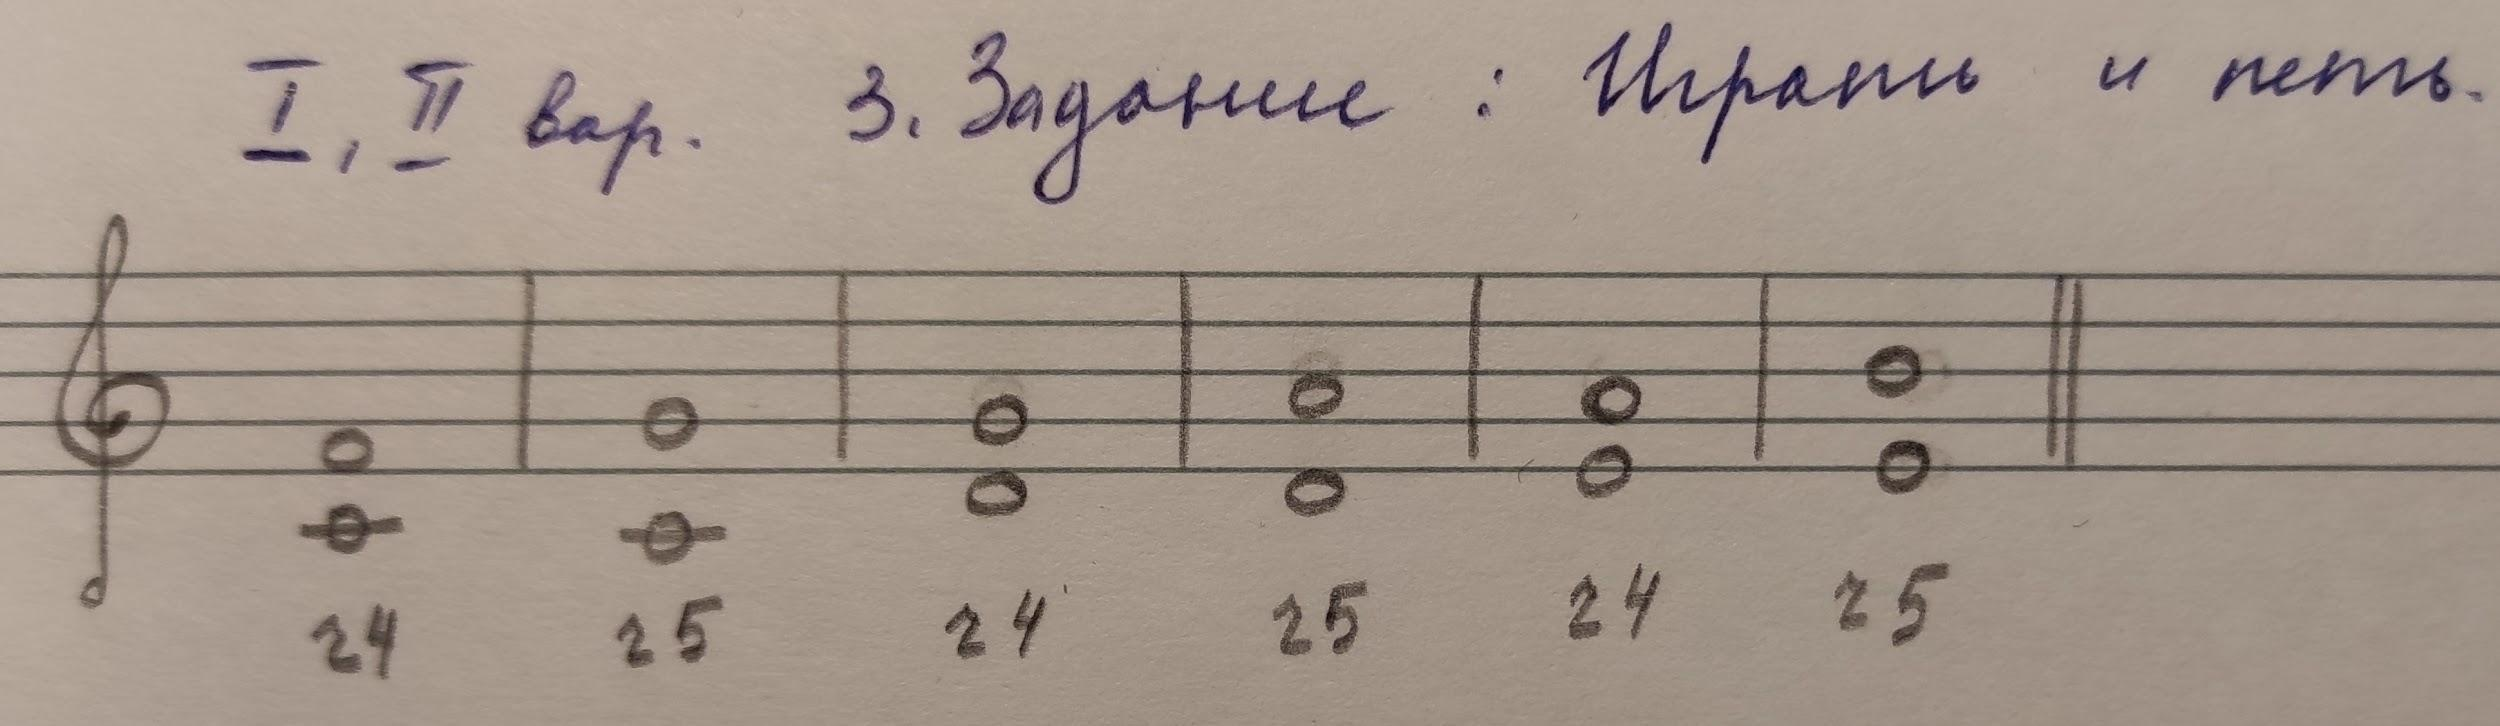 I, II вар. 3. Задание: Играть и петь.
ч4 ч5 ч4 ч5 ч4 ч5